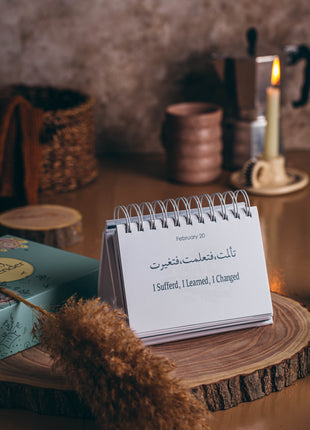 February 20
تألمت،فتعلمت،فتغيرت
I Sufferd, I Learned, I Changed